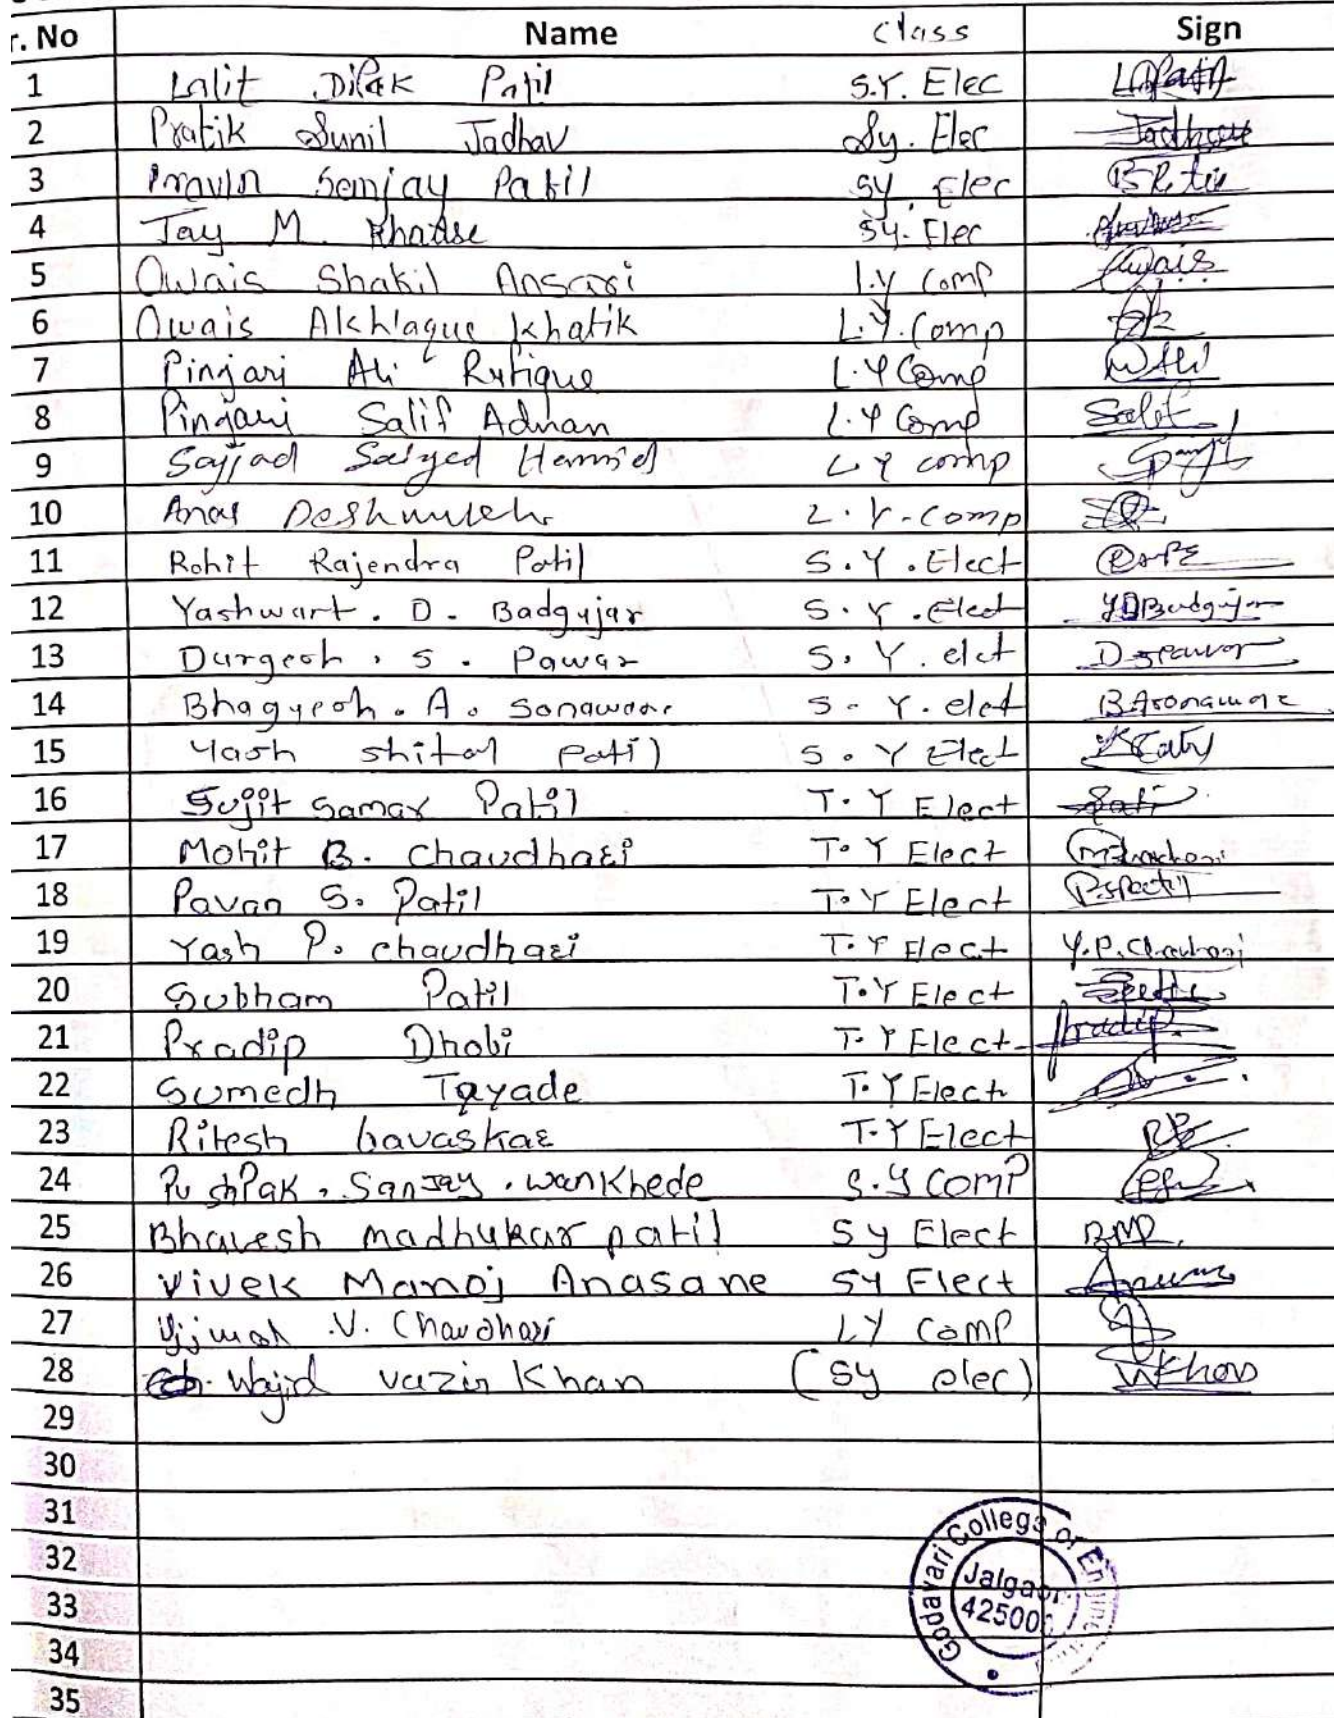 r. No Name Class Sign
1 Lalit Dipak Patil S.Y. Elec
2 Pratik Sunil Jadhav Sy. Elec Jadhav
3 Pravin Sanjay Patil Sy. Elec
4 Jay M. Sy. Elec
5 Owais Shakil Ansari L.Y Comp Owais
6 Owais Akhlaque Khatik L.Y. Comp
7 Pinjari Ali Rafique L.Y Comp
8 Pinjari Salif Adnan L.Y Comp Salif
9 Sajjad Saiyed Hamid L Y comp
10 Anas Deshmukh L.Y-comp
11 Rohit Rajendra Patil S.Y.Elect
12 Yashwant. D. Badgujar S.Y.Elect YDBadgujar
13 Durgesh . S. Pawar S.Y. elct D S Pawar
14 Bhagyesh. A. Sonawane S-Y. elect
15 Yash Shital Patil S.Y Elect
16 Sujit Samar Patil T.Y Elect
17 Mohit B. Chaudhari T.Y Elect
18 Pavan S. Patil T.Y Elect P.S.Patil
19 Yash P. Chaudhari T.Y Elect Y.P.Chaudhari
20 Subham Patil T.Y Elect
21 Pradip Dhobi T.Y Elect Pradip
22 Sumedh Tayade T.Y Elect
23 Ritesh bavaskar T.Y Elect RB
24 PushPak . Sanjay . wankhede S.Y COMP
25 Bhavesh madhukar patil Sy Elect BMP
26 Vivek Manoj Anasane SY Elect
27 .V. Chaudhari LY COMP
28 Wajid vazir Khan (Sy elec) WKhan
29
30
31
32
33
34
35
Godavari College of
Jalgaon